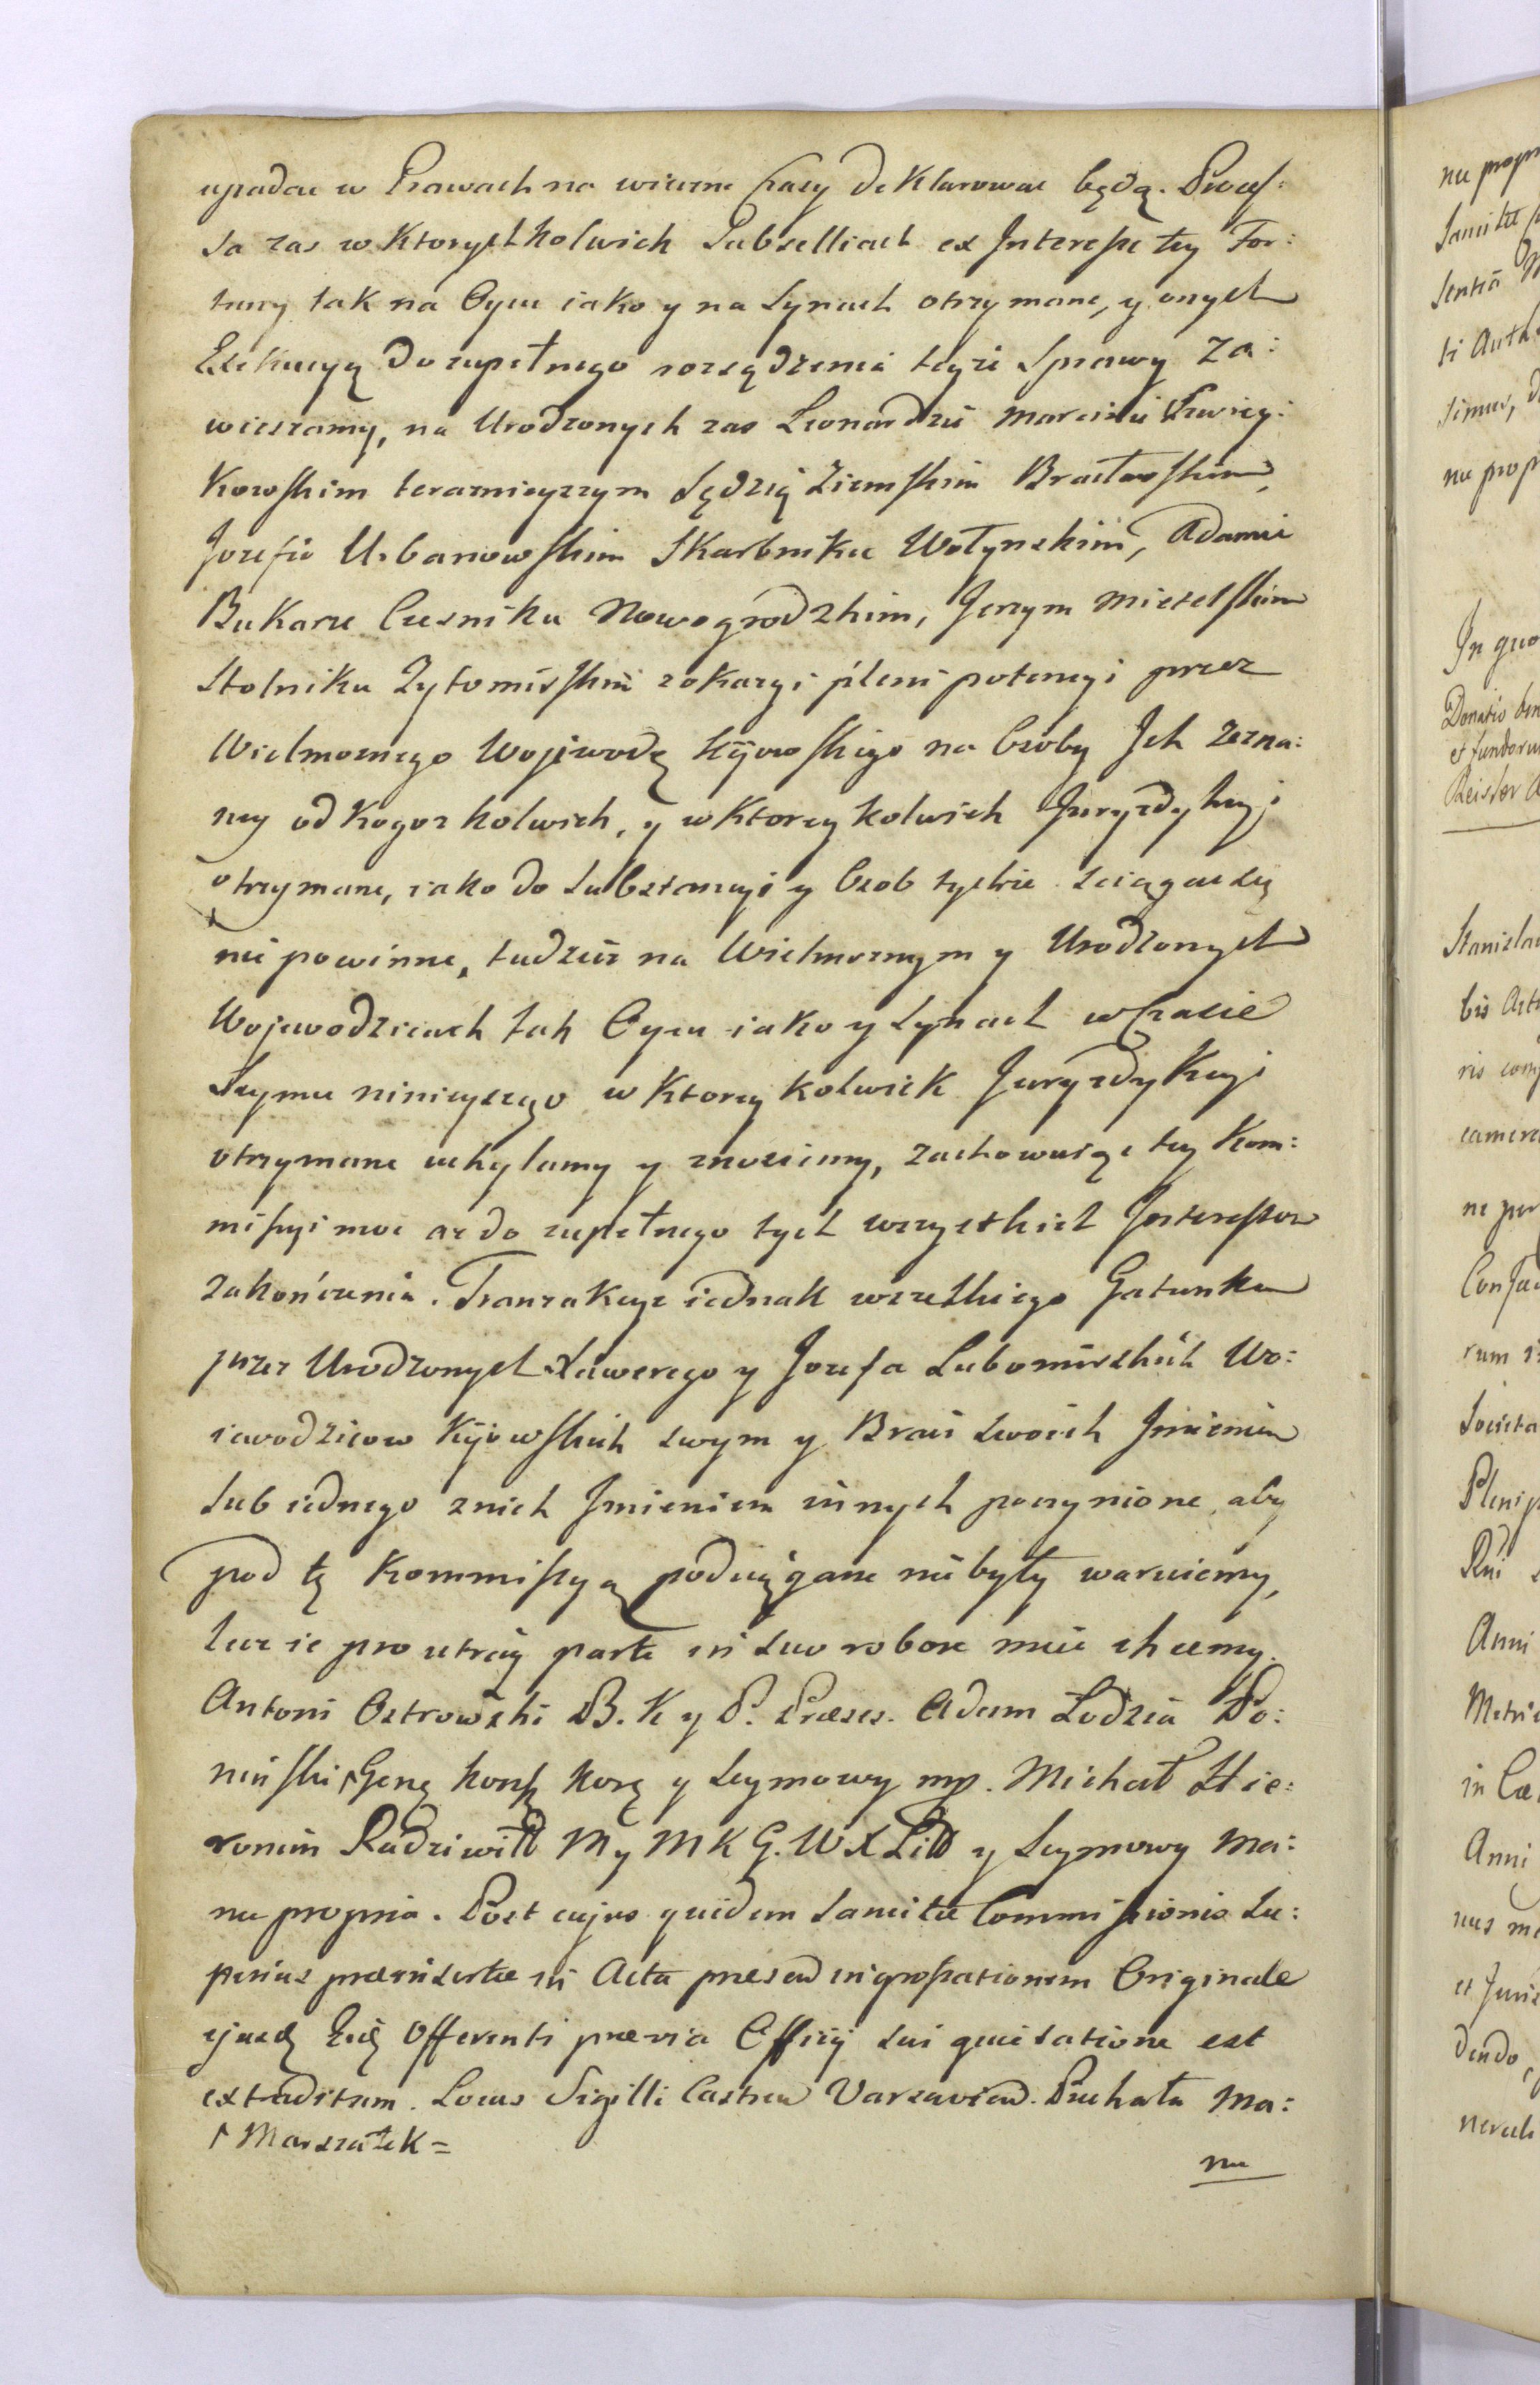 upadac w Prawach na wieczne Czasy deklarowac będą. Process:
sa zas w Ktorychkolwiek Subselliach ex Interesse tey For:
tuny tak na Oycu iako y na Synach otrzymane, y onych
Exekucyą do zupełnego rozsądzenia teyże Sprawy za:
wieszamy, na Urodzonych zas Leonardzie Marcinie Swiey:
kowskim teraznieyszym Sędzią Ziemskim Bracławskim,
Jozefie Urbanowskim Skarbniku Wołynskim, Adamie
Bukarze Czesniku Nowogrodzkim, Jerzym Mietelskim
Stolniku Zytomirskim z okazyi plenipotencyi przez
Wielmoznego Wojewodę Kijowskiego na Osoby Jch zezna:
ney od Kogoz kolwiek, y w Ktorey kolwiek Juryzdykcyi
otrzymane, iako do Substancyi y Osob tychze sciągac się
nie powinne, tudziesz na Wielmoznym y Urodzonych
Wojewodzicach tak Oycu iako y Synach w Czasie
Seymu ninieyszego w Ktorey kolwiek Juryzdykcyi
otrzymane uchylamy y znosiemy, zachowuiąc tey Kom:
missyi moc az do zupełnego tych wszystkich Interessow
zakonczenia. Tranzakcye iednak wszelkiego Gatunku
przez Urodzonych Xawerego y Jozefa Lubomirskich Wo:
iewodzicow Kijowskich swym y Braci swoich Jmieniem
lub iednego z nich Jmieniem innych poczynione, aby
pod tę Kommissyą podciągane nie były waruiemy,
lecz ie pro utraq parte in suo robore miec chcemy.
Antoni Ostrowski B. K y P. Præses. Adam Lodzia Po:
ninski, ↑ Genę Konfę Korę y Seymowy mp. Michał Hie:
ronim Radziwiłł M y M K G. W X Litt y Seymowy Ma:
nu propria. Post cujus quidem Sancitæ Commissionis Su:
perius præinsertæ in Acta præsen ingrossationem Originale
ejusdę Eidę Offerenti prævia Officij sui quietatione est
extraditum. Locus Sigilli Castren Varsavien. Puchała Ma:
↑ Marszałek =
nu
nu propr
Sancitæ
Sentiâ
ti Auth
simus,
nu prop
In quo
Donatio
et fundorum
Reisler
Stanislau
bis Act
ris comp
camera
ne per
Confæ
rum
Societa
Plenip
Rni
Anni
Metric
in Cæ
Anni
nus
et Juris
dendo,
nerali